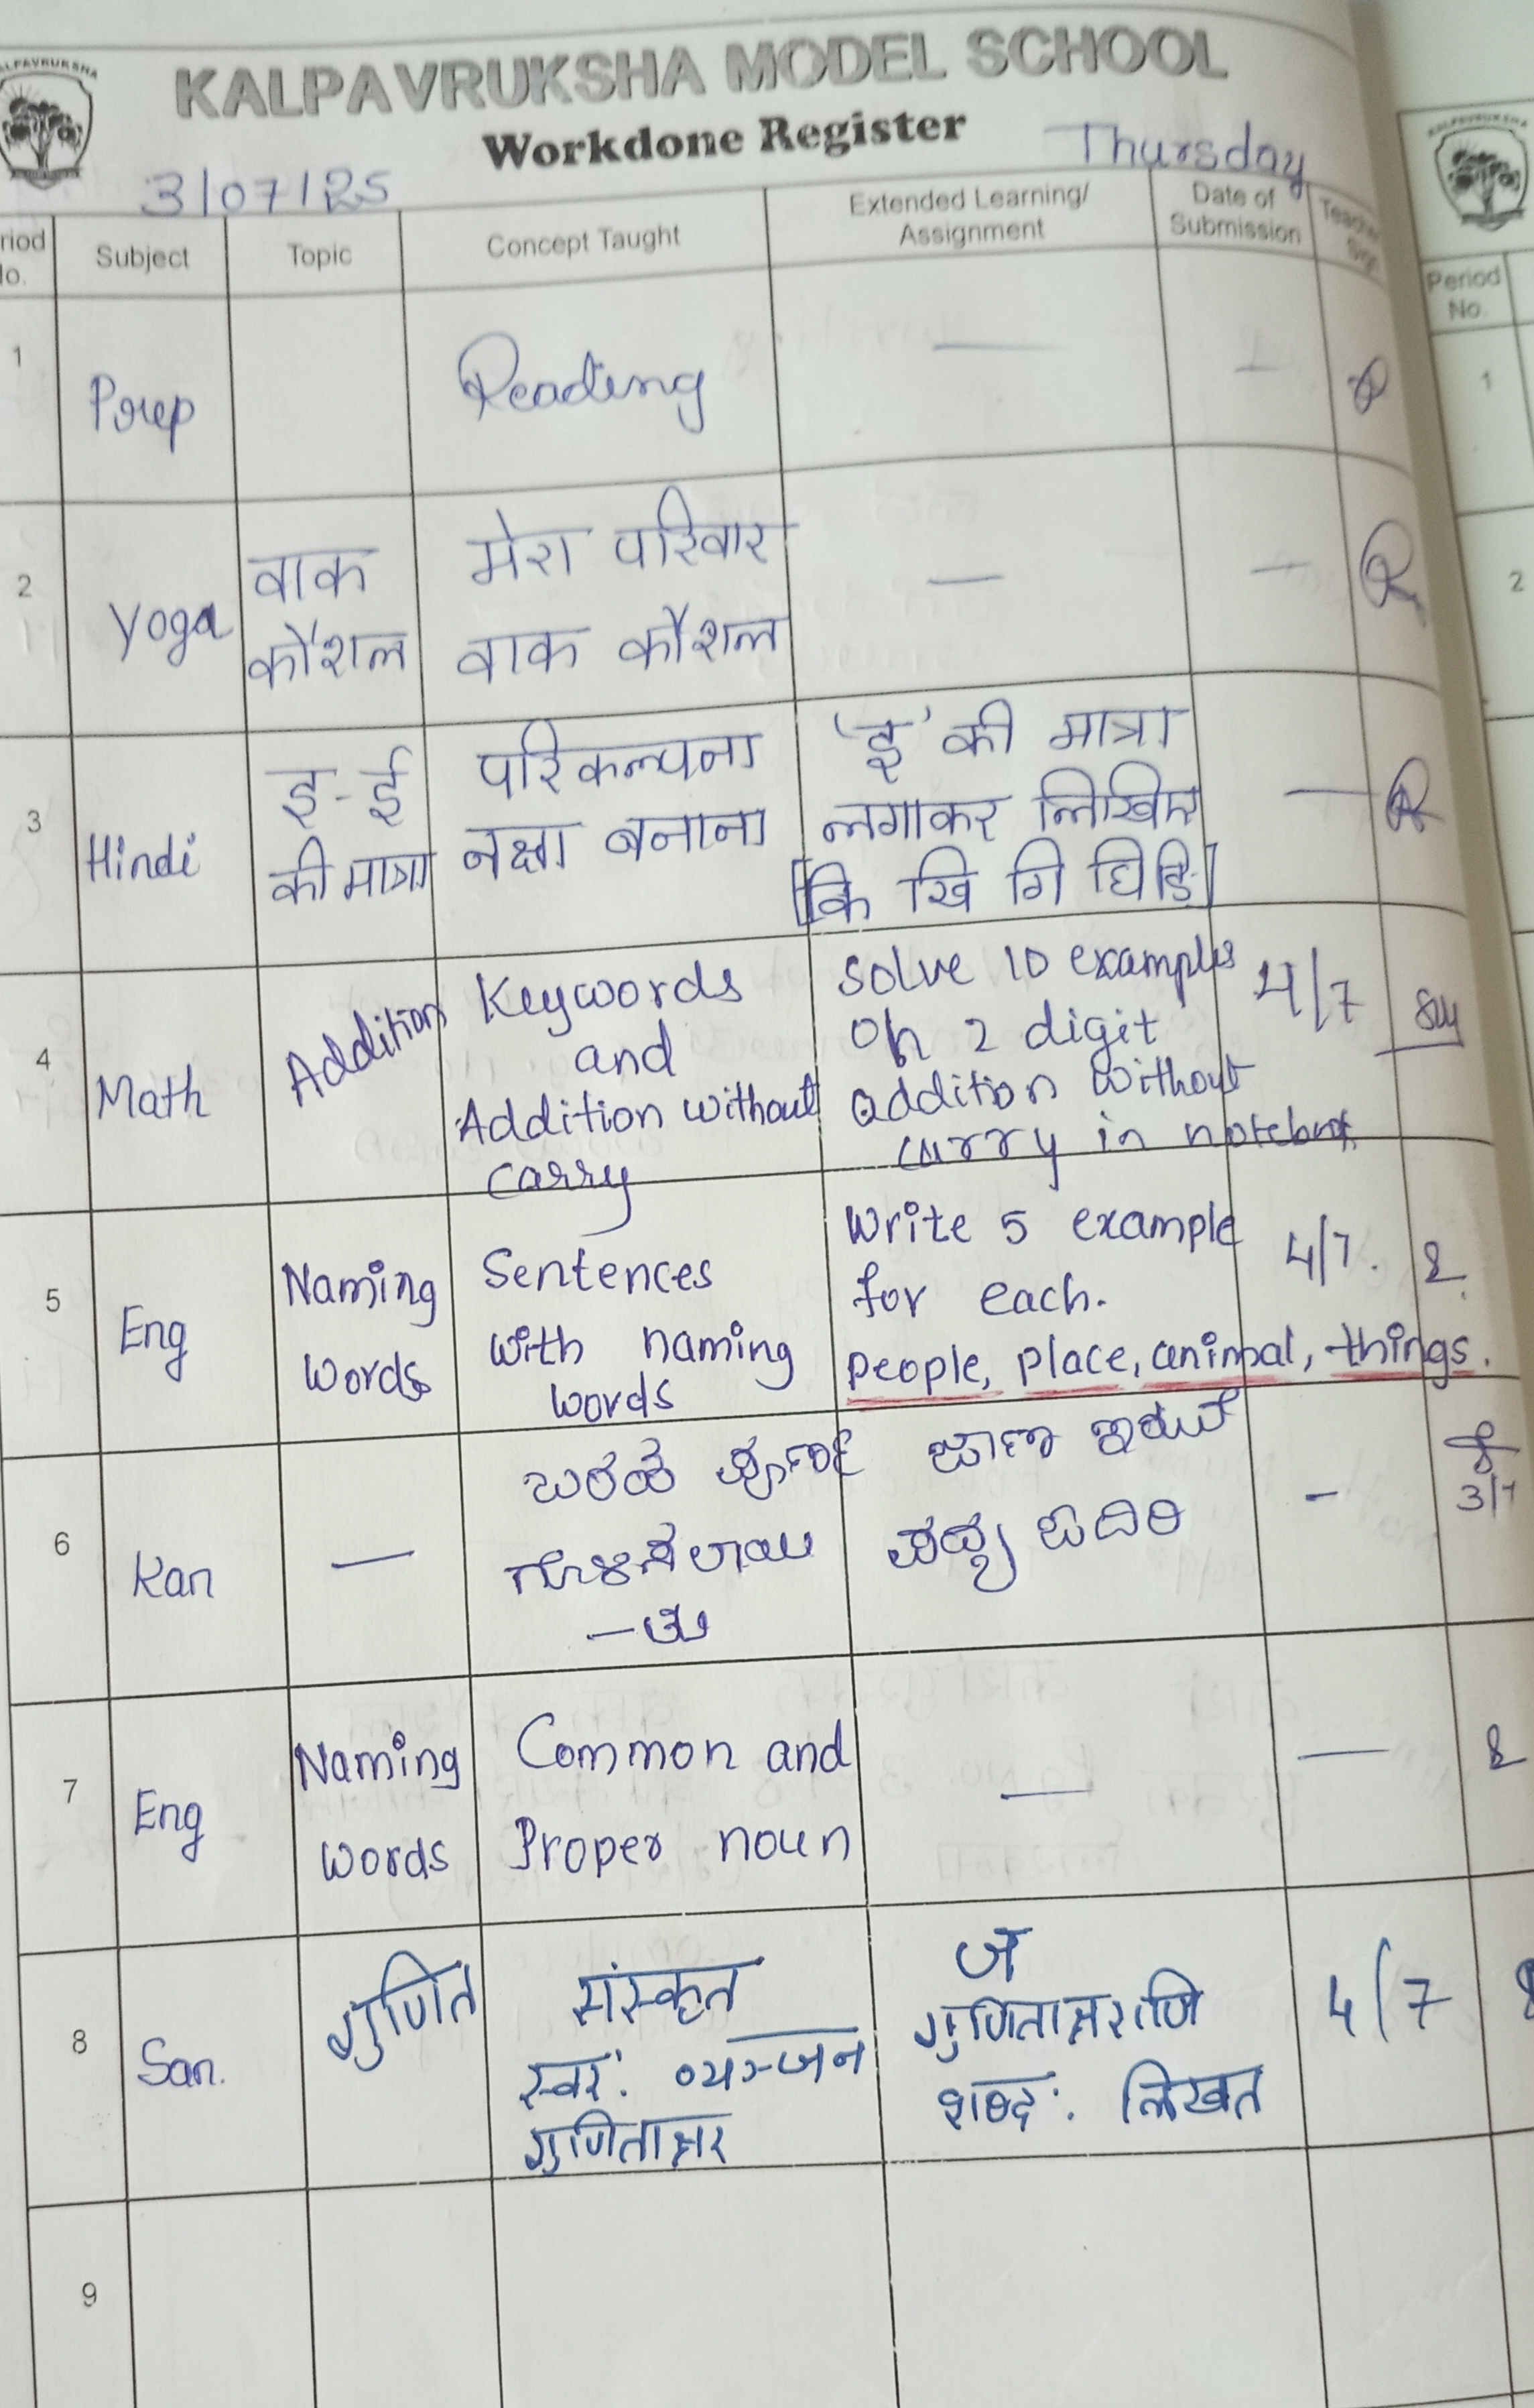 KALPAVRUKSHA
KALPAVRUKSHA MODEL SCHOOL
Workdone Register
3/07/25 Thursday
Period No. Subject Topic Concept Taught Extended Learning/ Assignment Date of Submission Teacher Sign
1 Prep Reading — —
2 Yoga वाक कौशल मेरा परिवार — —
वाक कौशल
3 Hindi इ-ई की मात्रा परिकल्पना 'इ' की मात्रा —
नक्षा बनाना लगाकर लिखिए
[कि खि गि घि ङि]
4 Math Addition Keywords solve 10 examples 4/7
and on 2 digit
Addition without addition without
carry carry in notebook
5 Eng Naming words Sentences Write 5 example 4/7.
with naming for each.
words people, place, animal, things.
6 Kan — ಬರಹ ಜಾಣ ಇರುವೆ —
ಪದ್ಯ ಓದಿರಿ
3/7
7 Eng Naming words Common and — —
Proper noun
8 San. गुणित संस्कृत जॅ 4/7
स्वर: व्यञ्जन गुणिताक्षराणि
गुणिताक्षर शब्द: लिखत
9
KALPAVRUKSHA
Period No.
1
2